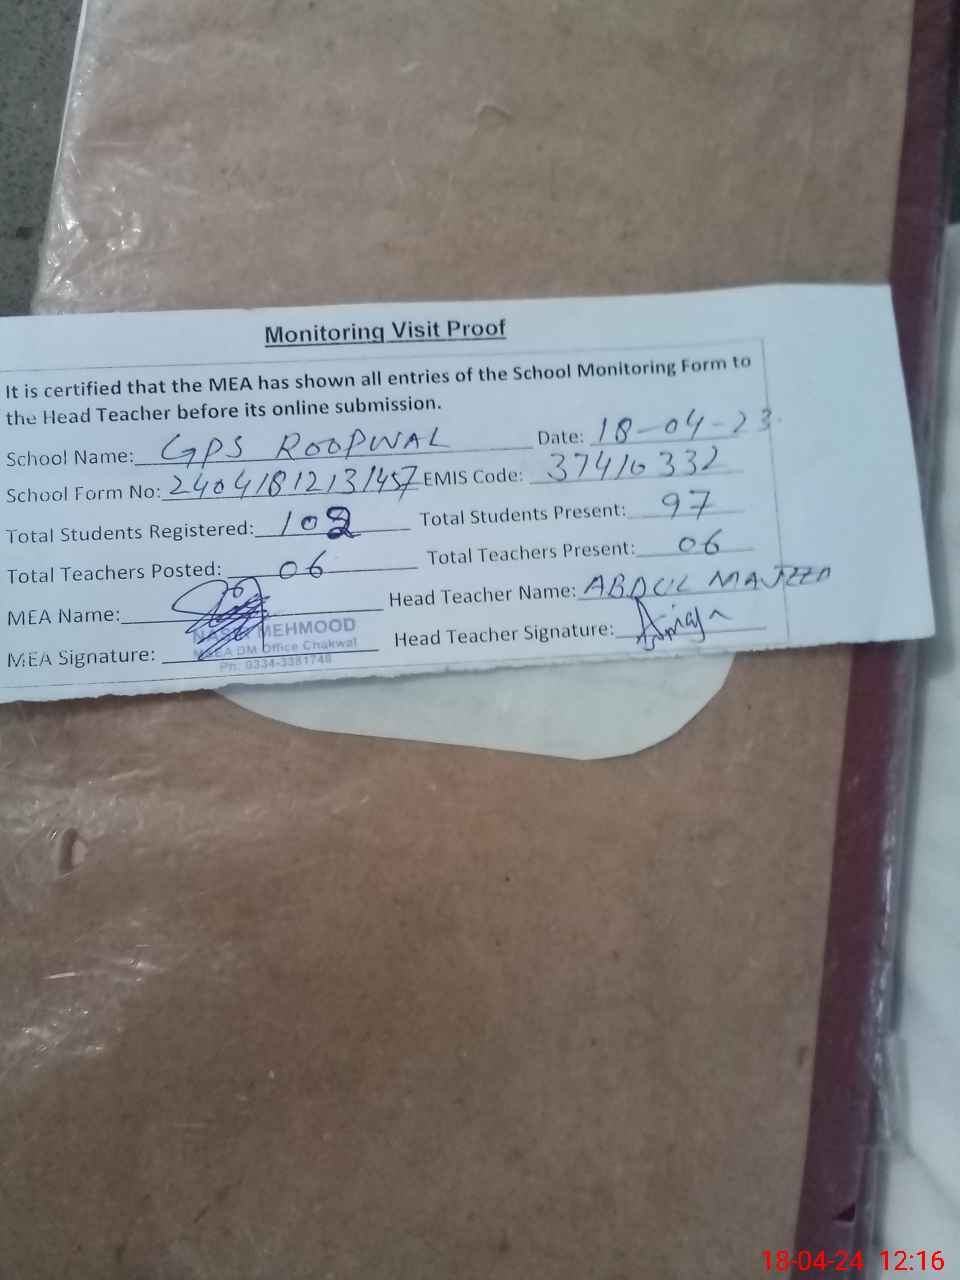 Monitoring Visit Proof
It is certified that the MEA has shown all entries of the School Monitoring Form to
the Head Teacher before its online submission.
School Name: GPS ROOPWAL Date: 18-04-23
School Form No: 24041812131457 EMIS Code: 37410332
Total Students Registered: 102 Total Students Present: 97
Total Teachers Posted: 06 Total Teachers Present: 06
MEA Name: Head Teacher Name: ABDUL MAJEED
MEA Signature: Head Teacher Signature:
MEHMOOD
MEA DM Office Chakwal
Ph: 0334-3381748
18-04-24 12:16